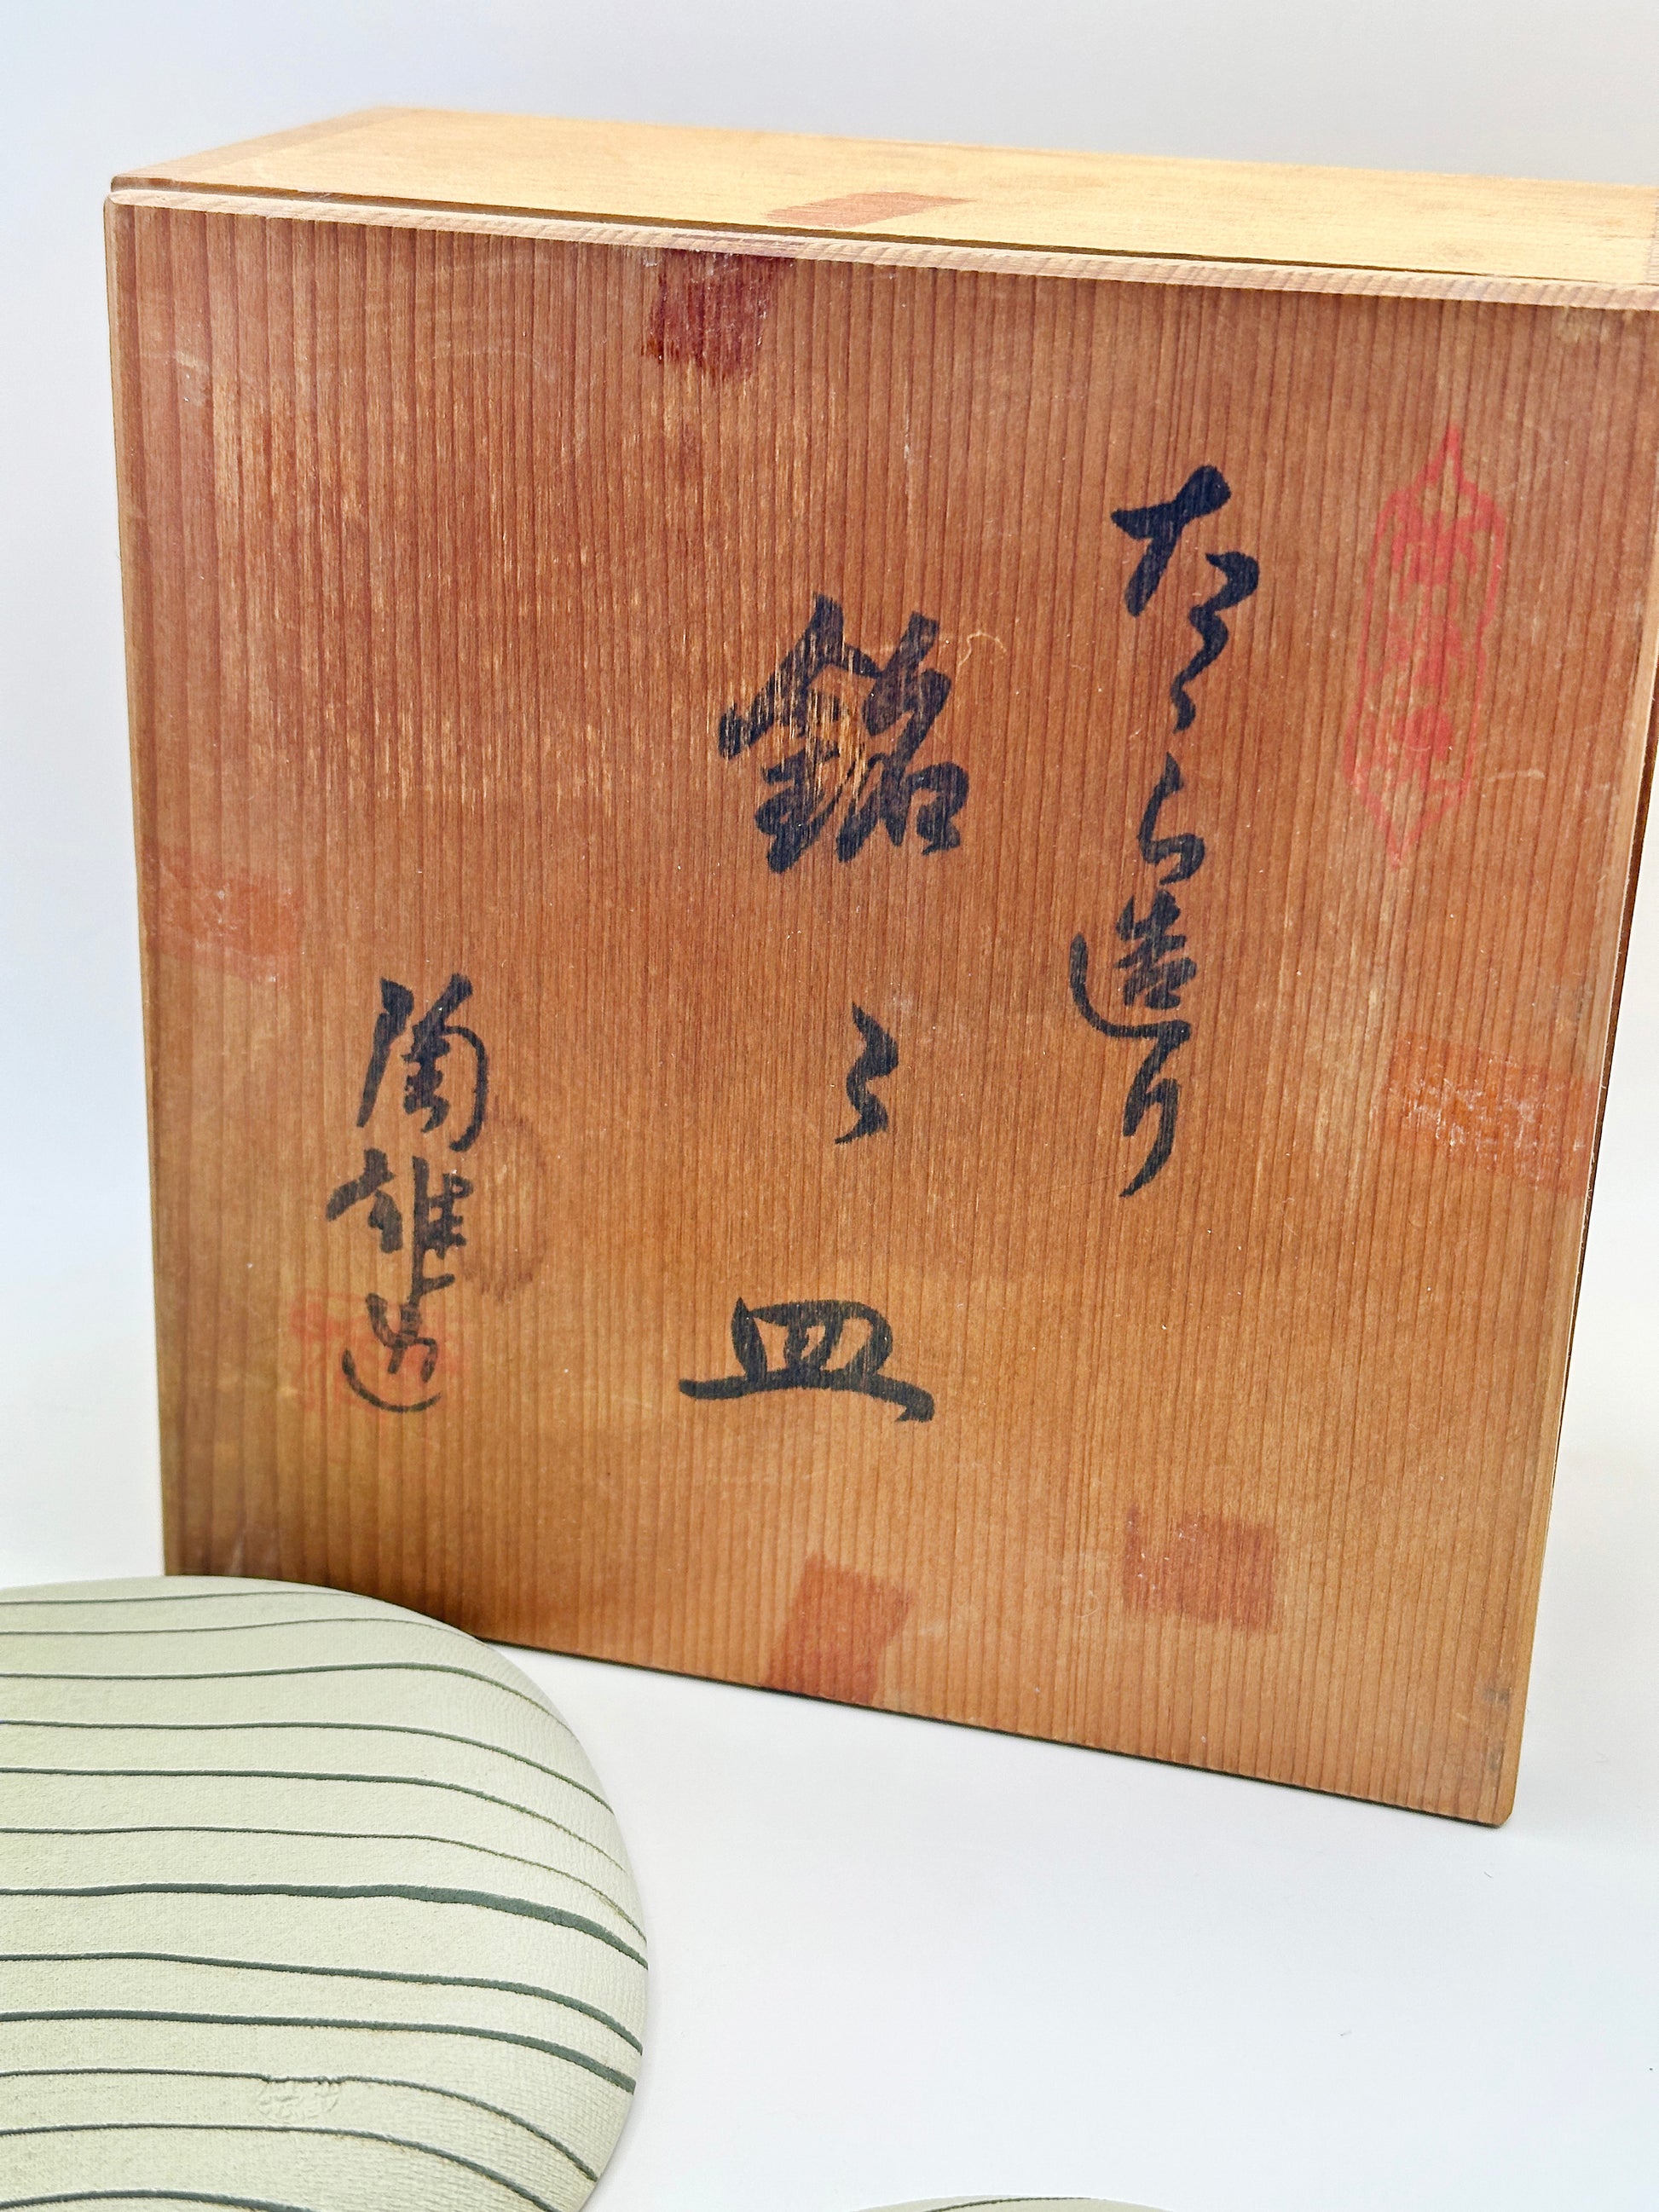 たゝら造り
銘々皿
陶雄造